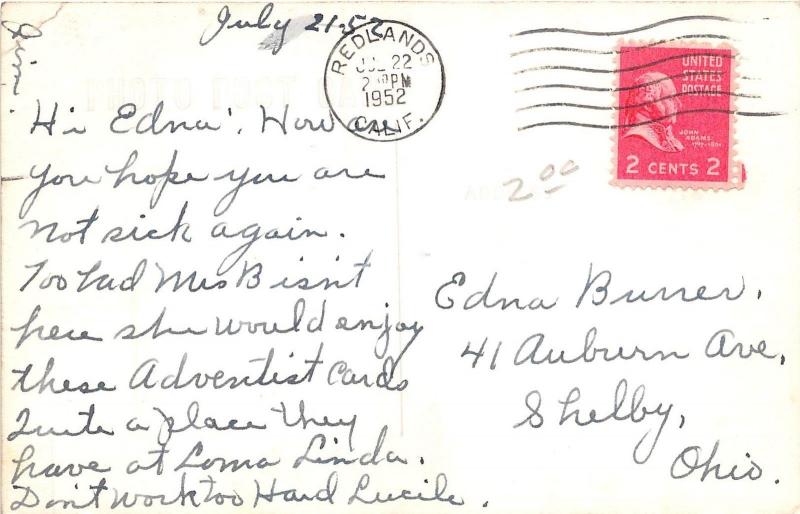 July 21-52
REDLANDS
JUL 22
2 PM
1952
CALIF.
UNITED
STATES
POSTAGE
JOHN
ADAMS
1797-1801
2 CENTS 2
2.00
Hi Edna! How are
you hope you are
not sick again.
Too bad Mrs B isn't
here she would enjoy
these Adventist Cards
Quite a place they
have at Loma Linda.
Don't work too Hard Lucile.
Edna Burrer,
41 Auburn Ave,
Shelby,
Ohio.